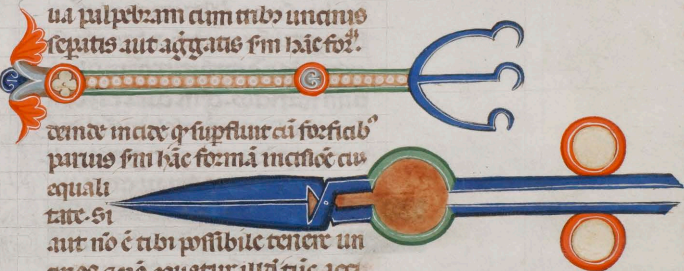 ua palpebram cum tribꝰ uncinis
sepatis aut aggatis sm hāc forꝫ.
deinde incide qꝫ suꝑfluit cū forficibꝰ
paruis sm hāc formā incisiōe cū
equali
tate. Si
aut nō ē tibi possibile tenere un